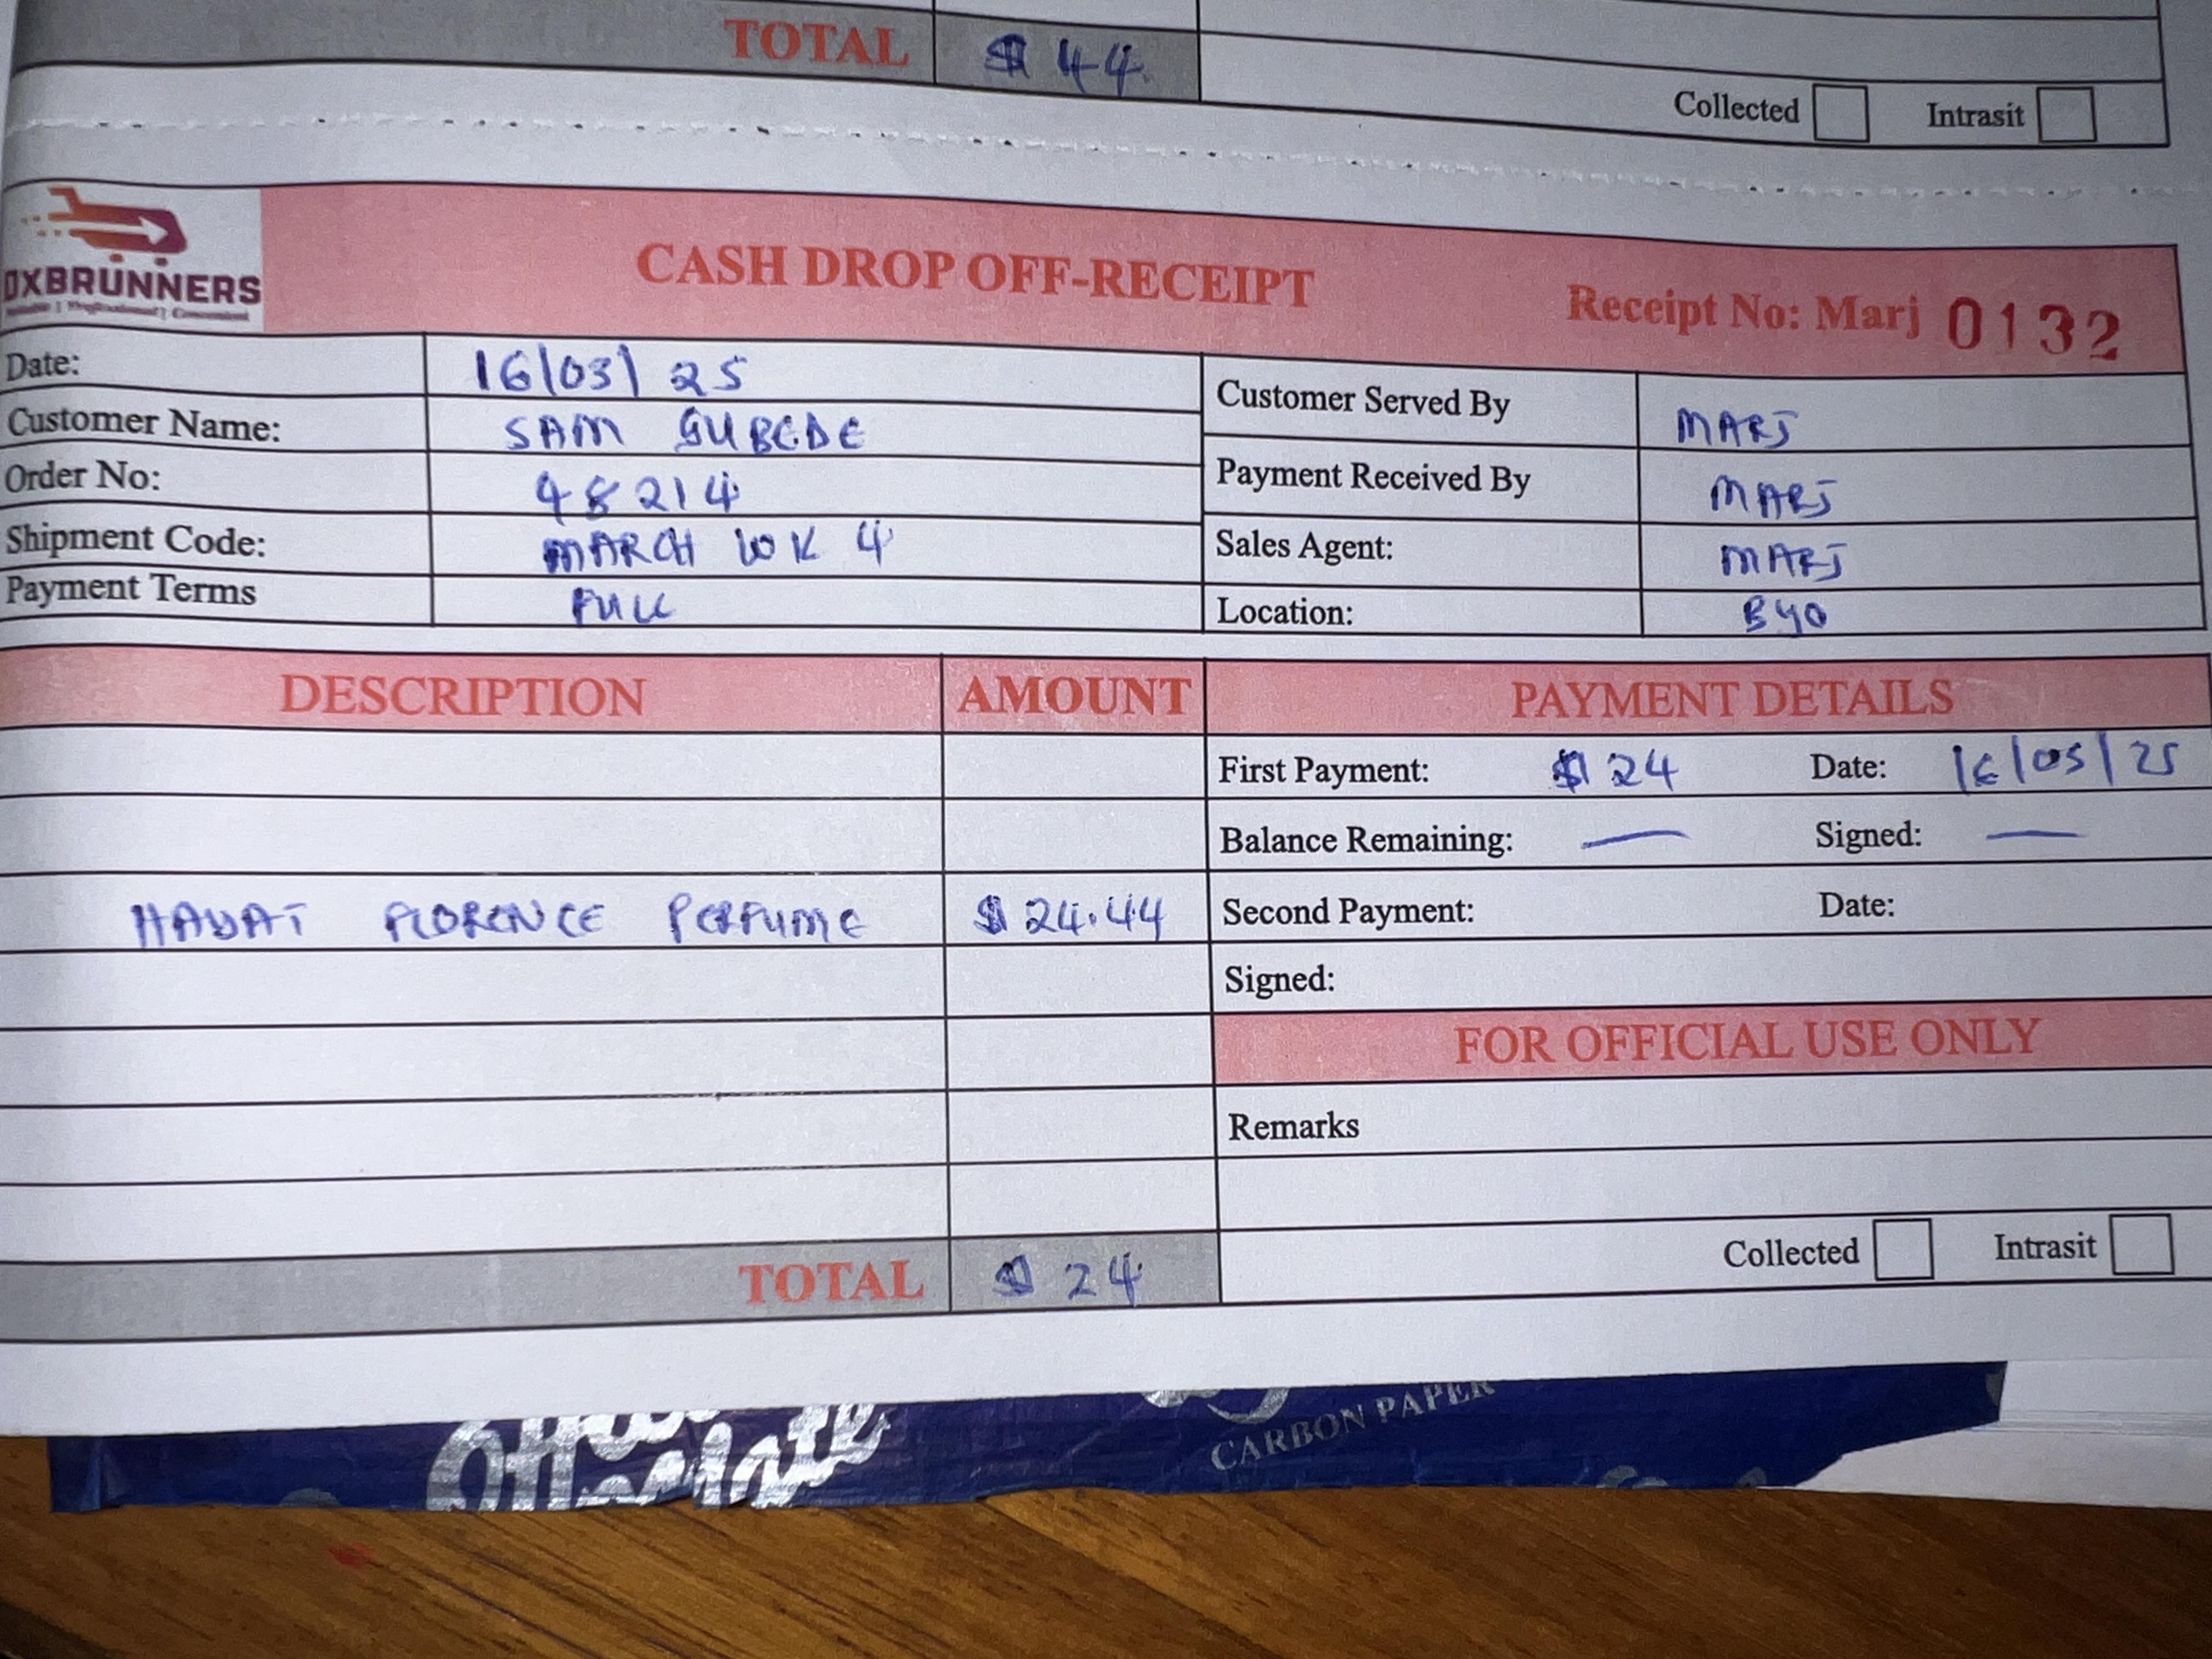 TOTAL $ 44
Collected Intrasit
OXBRUNNERS
CASH DROP OFF-RECEIPT
Receipt No: Marj 0132
Date: 16/03/25
Customer Name: SAM GUBEDE
Order No: 48214
Shipment Code: MARCH WK 4
Payment Terms FULL
Customer Served By MARJ
Payment Received By MARJ
Sales Agent: MARJ
Location: BYO
DESCRIPTION AMOUNT
HAYAT FLORENCE PERFUME $ 24.44
TOTAL $ 24
PAYMENT DETAILS
First Payment: $ 24 Date: 16/03/25
Balance Remaining: — Signed: —
Second Payment: Date:
Signed:
FOR OFFICIAL USE ONLY
Remarks
Collected Intrasit
CARBON PAPER